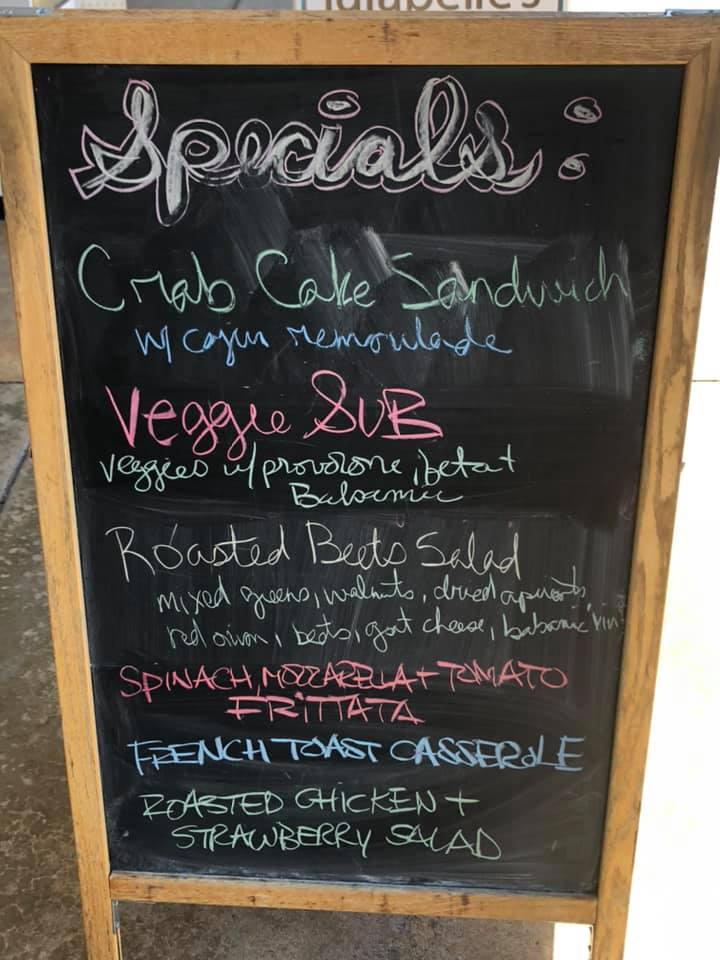 Specials:
Crab Cake Sandwich
w/ cajun remoulade
Veggie SUB
veggies w/ provolone, feta +
Balsamic
Roasted Beets Salad
mixed greens, walnuts, dried apricots,
red onion, beets, goat cheese, balsamic vin
SPINACH, MOZZARELLA + TOMATO
FRITTATA
FRENCH TOAST CASSEROLE
ROASTED CHICKEN +
STRAWBERRY SALAD